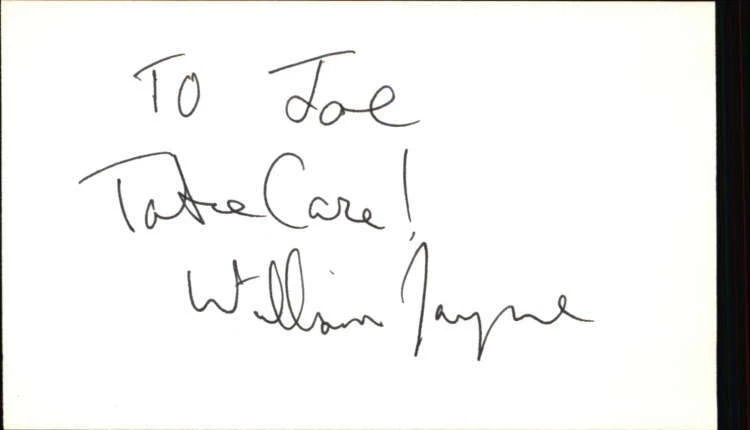 To Joe
Take Care!
William Jayne